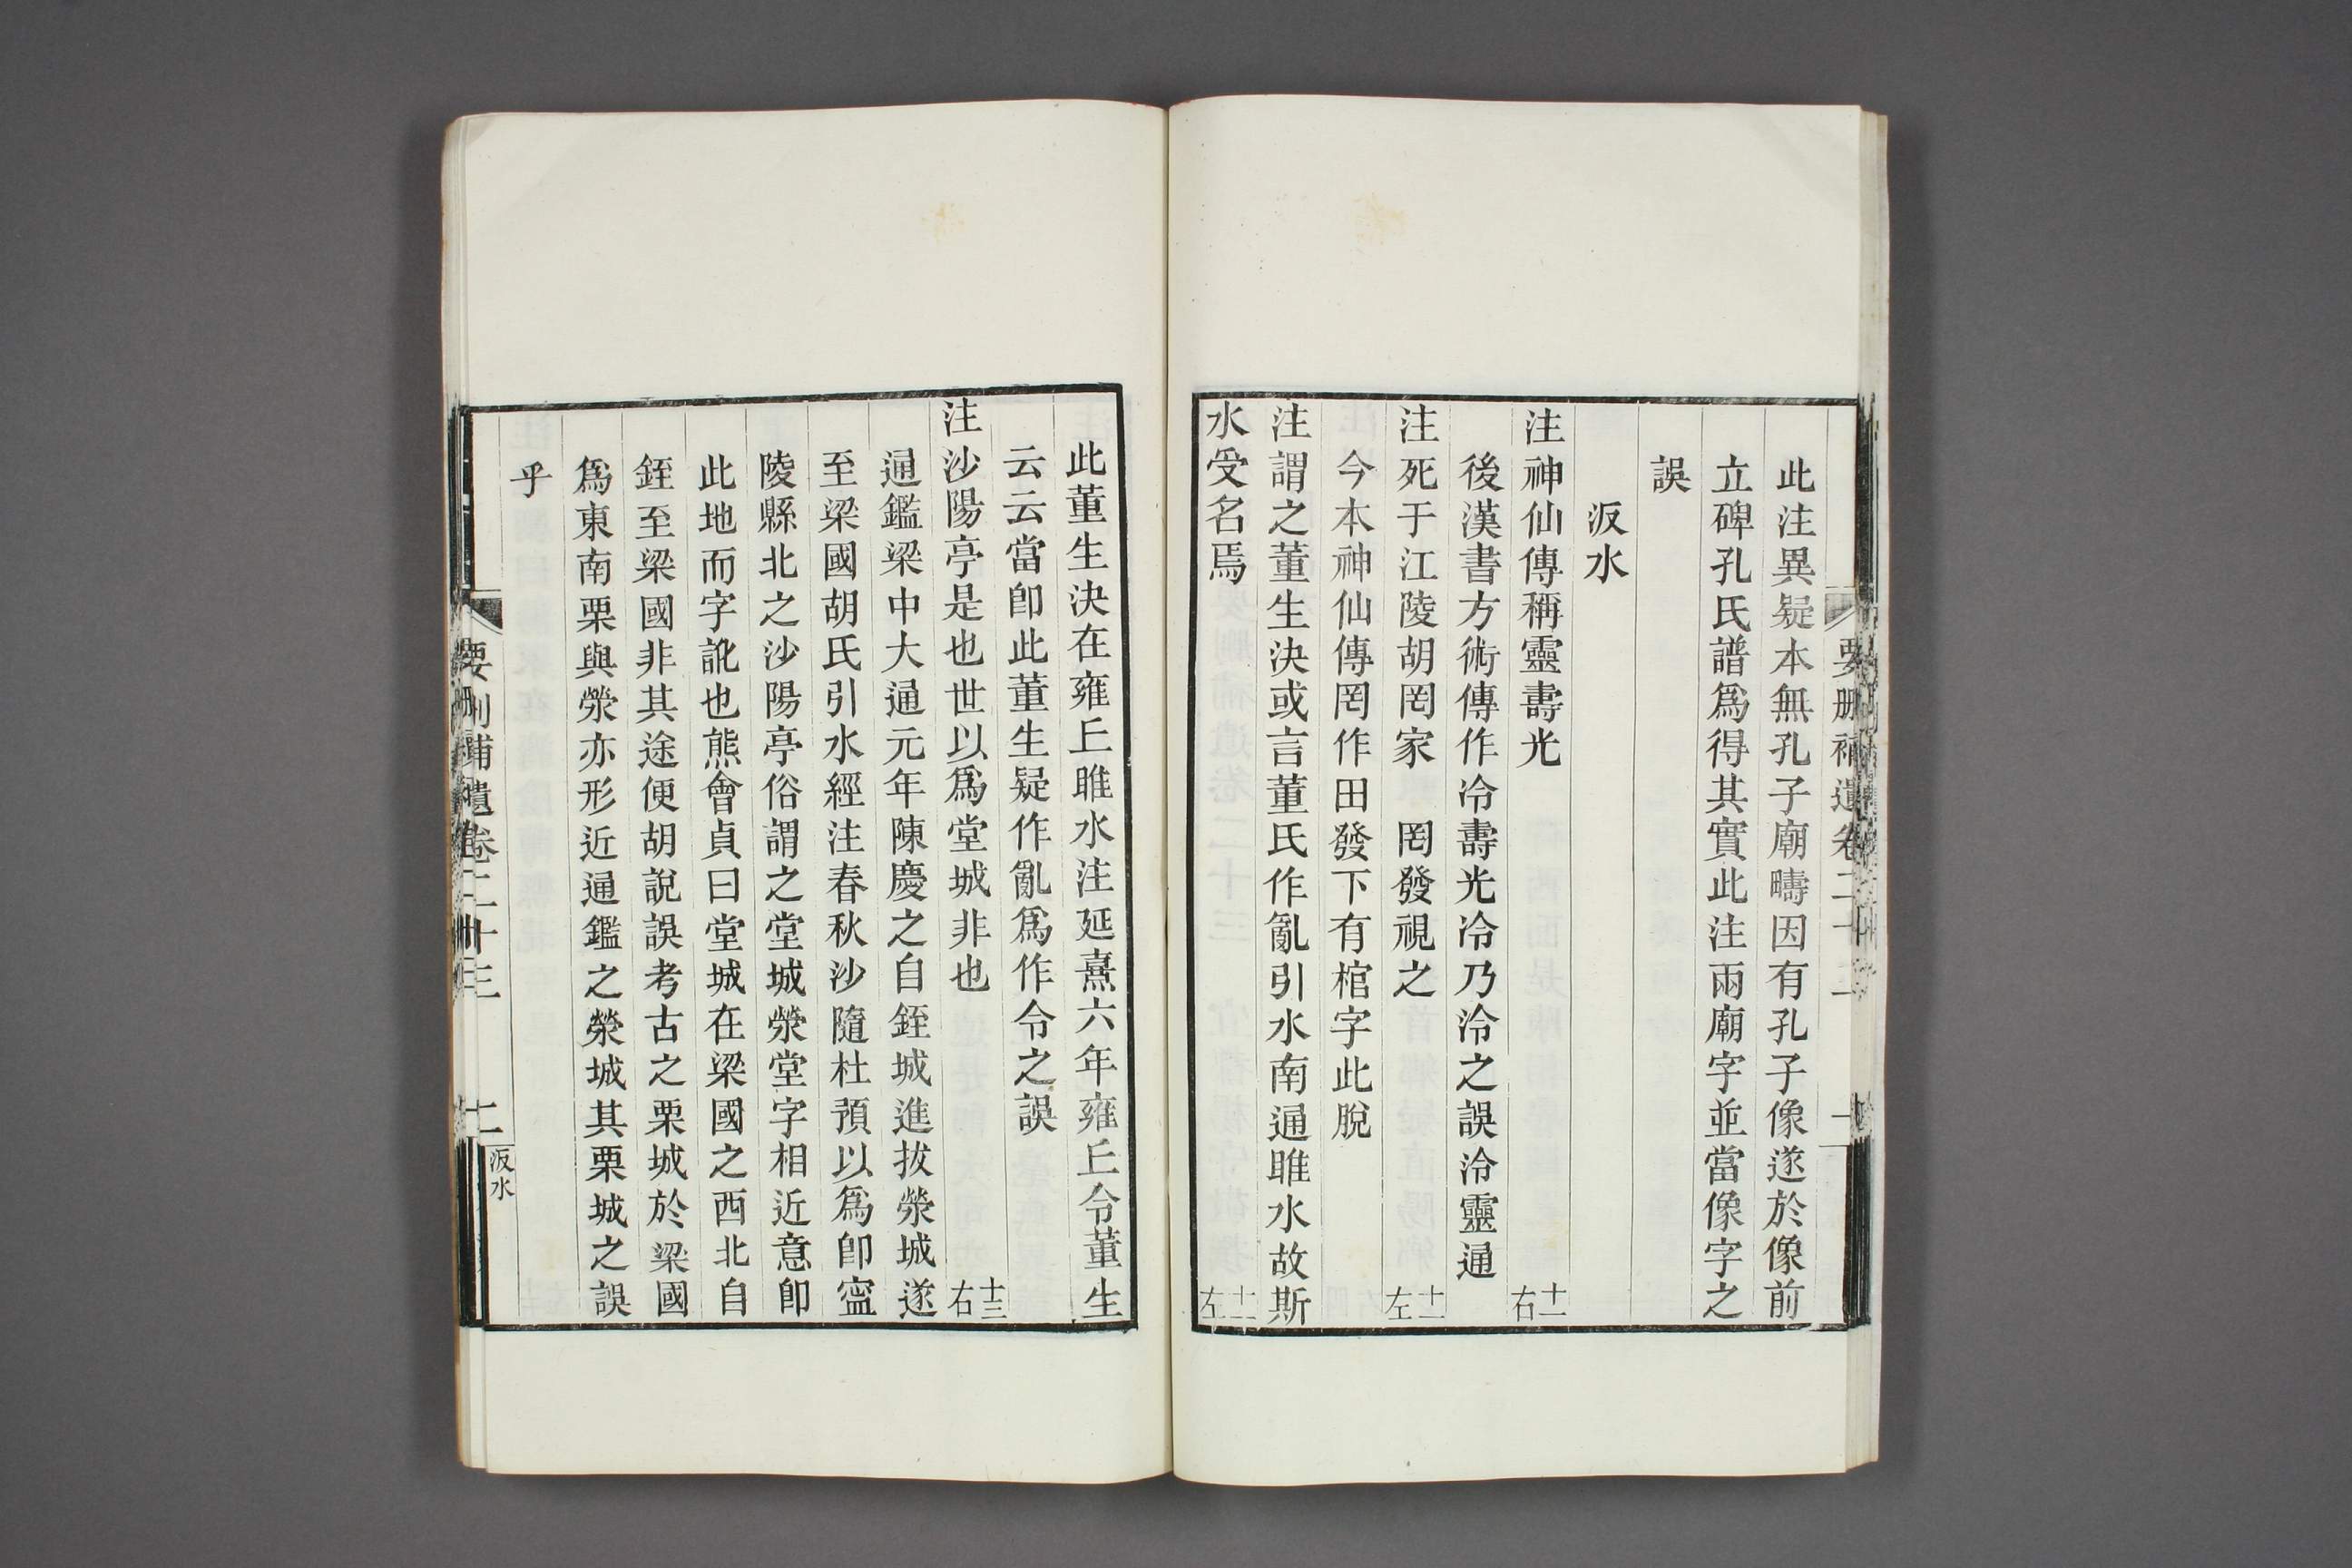 此注異疑本無孔子廟疇因有孔子像遂於像前
立碑孔氏譜爲得其實此注兩廟字並當像字之
誤
汳水
注神仙傳稱靈壽光 十一右
後漢書方術傳作冷壽光冷乃泠之誤泠靈通
注死于江陵胡罔家 罔發視之 十一左
今本神仙傳罔作田發下有棺字此脫
注謂之董生決或言董氏作亂引水南通睢水故斯
水受名焉 十二左
此董生決在雍丘睢水注延熹六年雍丘令董生
云云當卽此董生疑作亂爲作令之誤
注沙陽亭是也世以爲堂城非也 十三右
通鑑梁中大通元年陳慶之自銍城進拔滎城遂
至梁國胡氏引水經注春秋沙隨杜預以爲卽寍
陵縣北之沙陽亭俗謂之堂城滎堂字相近意卽
此地而字訛也熊會貞曰堂城在梁國之西北自
銍至梁國非其途便胡說誤考古之栗城於梁國
爲東南栗與滎亦形近通鑑之滎城其栗城之誤
乎
要刪補遺卷二十三
汳水